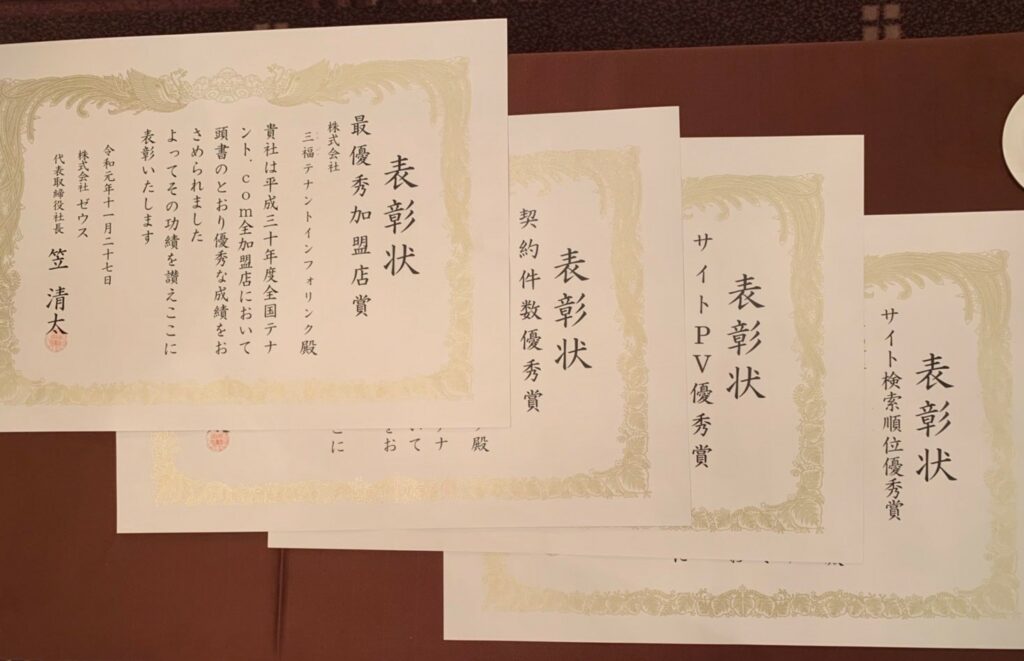 表彰状
最優秀加盟店賞
株式会社
三福テナントインフォリンク殿
貴社は平成三十年度全国テナ
ント.com全加盟店において
頭書のとおり優秀な成績をお
さめられました
よってその功績を讃えここに
表彰いたします
令和元年十一月二十七日
株式会社ゼウス
代表取締役社長 笠 清太
表彰状
契約件数優秀賞
殿
ナ
いて
をお
こに
表彰状
サイトPV優秀賞
表彰状
サイト検索順位優秀賞